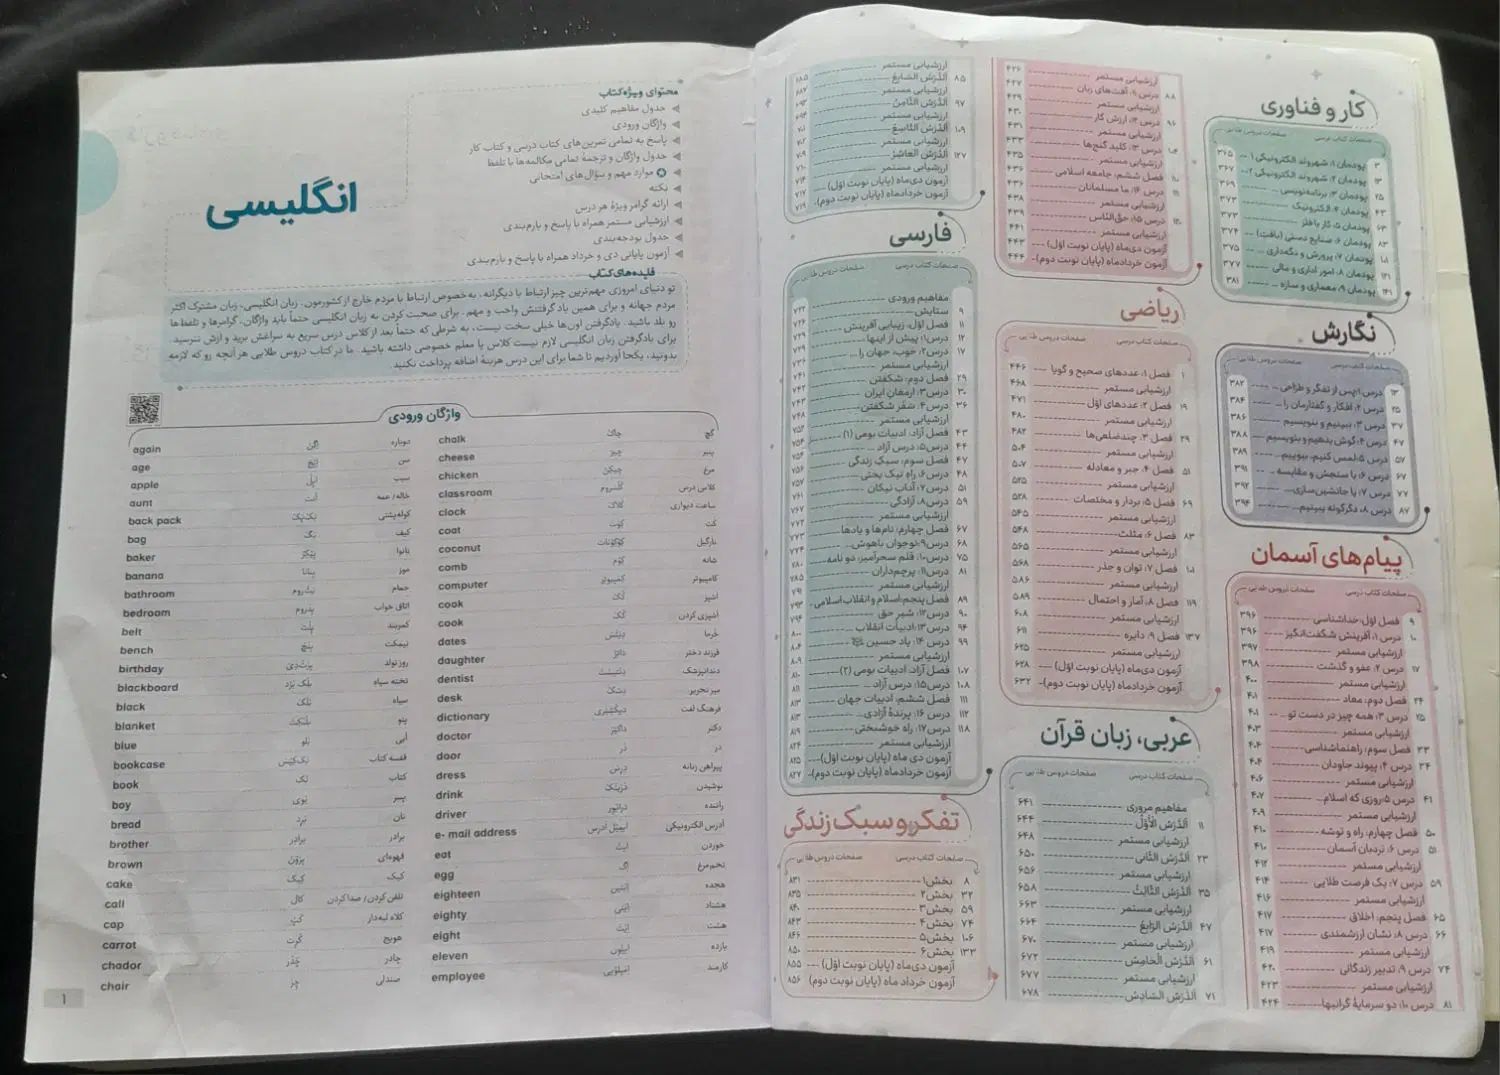 کار و فناوری
صفحات کتاب درسی صفحات دروس طلایی
۳ پودمان ۱: شهروند الکترونیکی ۱ ۳۶۵
۱۳ پودمان ۲: شهروند الکترونیکی ۲ ۳۶۷
۲۵ پودمان ۳: برنامه‌نویسی ۳۶۹
۴۳ پودمان ۴: الکترونیک ۳۷۳
۶۳ پودمان ۵: کار با فلز ۳۷۳
۸۳ پودمان ۶: صنایع دستی (بافت) ۳۷۴
۱۰۱ پودمان ۷: پرورش و نگهداری ۳۷۵
۱۲۱ پودمان ۸: امور اداری و مالی ۳۷۷
۱۴۱ پودمان ۹: معماری و سازه ۳۸۱
نگارش
صفحات کتاب درسی صفحات دروس طلایی
۱۲ درس ۱: پس از تفکر و طراحی... ۳۸۲
۲۵ درس ۲: افکار و گفتارمان را... ۳۸۴
۳۷ درس ۳: ببینیم و بنویسیم ۳۸۶
۴۷ درس ۴: گوش بدهیم و بنویسیم ۳۸۸
۵۷ درس ۵: لمس کنیم، ببوییم... ۳۸۹
۶۷ درس ۶: با سنجش و مقایسه... ۳۹۱
۷۷ درس ۷: با جانشین‌سازی... ۳۹۲
۸۷ درس ۸: دگرگونه ببینیم... ۳۹۴
پیام‌های آسمان
صفحات کتاب درسی صفحات دروس طلایی
۹ فصل اول: خداشناسی ۳۹۶
۱۰ درس ۱: آفرینش شگفت‌انگیز ۳۹۶
ارزشیابی مستمر ۳۹۷
۱۷ درس ۲: عفو و گذشت ۳۹۸
ارزشیابی مستمر ۴۰۰
۲۴ فصل دوم: معاد ۴۰۱
۲۵ درس ۳: همه چیز در دست تو ۴۰۱
ارزشیابی مستمر ۴۰۳
۳۳ فصل سوم: راهنماشناسی ۴۰۴
۳۴ درس ۴: پیوند جاودان ۴۰۴
ارزشیابی مستمر ۴۰۶
۴۱ درس ۵: روزی که اسلام... ۴۰۷
ارزشیابی مستمر ۴۰۹
۵۰ فصل چهارم: راه و توشه ۴۱۰
۵۱ درس ۶: نردبان آسمان ۴۱۰
ارزشیابی مستمر ۴۱۲
۵۹ درس ۷: یک فرصت طلایی ۴۱۴
ارزشیابی مستمر ۴۱۶
۶۵ فصل پنجم: اخلاق ۴۱۷
۶۶ درس ۸: نشان ارزشمندی ۴۱۷
ارزشیابی مستمر ۴۱۹
۷۴ درس ۹: تدبیر زندگانی ۴۲۰
ارزشیابی مستمر ۴۲۳
۸۱ درس ۱۰: دو سرمایهٔ گرانبها ۴۲۴
ارزشیابی مستمر ۴۲۶
۸۸ درس ۱۱: آفت‌های زبان ۴۲۷
ارزشیابی مستمر ۴۲۹
۹۶ درس ۱۲: ارزش کار ۴۳۰
ارزشیابی مستمر ۴۳۱
۱۰۴ درس ۱۳: کلید گنج‌ها ۴۳۳
ارزشیابی مستمر ۴۳۵
۱۱۰ فصل ششم: جامعه اسلامی ۴۳۶
۱۱۱ درس ۱۴: ما مسلمانان ۴۳۶
ارزشیابی مستمر ۴۳۸
۱۲۰ درس ۱۵: حق‌الناس ۴۳۹
ارزشیابی مستمر ۴۴۱
آزمون دی‌ماه (پایان نوبت اول) ۴۴۳
آزمون خردادماه (پایان نوبت دوم) ۴۴۴
ریاضی
صفحات کتاب درسی صفحات دروس طلایی
۱ فصل ۱: عددهای صحیح و گویا ۴۴۶
ارزشیابی مستمر ۴۶۸
۱۹ فصل ۲: عددهای اول ۴۷۱
ارزشیابی مستمر ۴۸۰
۲۹ فصل ۳: چندضلعی‌ها ۴۸۲
ارزشیابی مستمر ۵۰۴
۵۱ فصل ۴: جبر و معادله ۵۰۷
ارزشیابی مستمر ۵۲۵
۶۹ فصل ۵: بردار و مختصات ۵۲۸
ارزشیابی مستمر ۵۴۵
۸۳ فصل ۶: مثلث ۵۴۸
ارزشیابی مستمر ۵۶۵
۱۰۱ فصل ۷: توان و جذر ۵۶۸
ارزشیابی مستمر ۵۸۶
۱۱۹ فصل ۸: آمار و احتمال ۵۸۹
ارزشیابی مستمر ۶۰۸
۱۳۷ فصل ۹: دایره ۶۱۱
ارزشیابی مستمر ۶۲۵
آزمون دی‌ماه (پایان نوبت اول) ۶۲۸
آزمون خردادماه (پایان نوبت دوم) ۶۳۲
عربی، زبان قرآن
صفحات کتاب درسی صفحات دروس طلایی
مفاهیم مروری ۶۴۱
۱۱ اَلدَّرْسُ الْأَوَّلُ ۶۴۴
ارزشیابی مستمر ۶۴۸
۲۳ اَلدَّرْسُ الثّاني ۶۵۰
ارزشیابی مستمر ۶۵۶
۳۵ اَلدَّرْسُ الثّالِثُ ۶۵۸
ارزشیابی مستمر ۶۶۳
۴۷ اَلدَّرْسُ الرّابِعُ ۶۶۴
ارزشیابی مستمر ۶۷۰
۶۱ اَلدَّرْسُ الْخامِسُ ۶۷۲
ارزشیابی مستمر ۶۷۷
۷۱ اَلدَّرْسُ السّادِسُ ۶۷۸
ارزشیابی مستمر ۶۸۵
۸۵ اَلدَّرْسُ السّابِعُ ۶۸۵
ارزشیابی مستمر ۶۸۷
۹۷ اَلدَّرْسُ الثّامِنُ ۶۹۲
ارزشیابی مستمر ۶۹۴
۱۰۹ اَلدَّرْسُ التّاسِعُ ۷۰۱
ارزشیابی مستمر ۷۰۲
۱۲۷ اَلدَّرْسُ الْعاشِرُ ۷۰۹
ارزشیابی مستمر ۷۱۰
آزمون دی‌ماه (پایان نوبت اول) ۷۱۴
آزمون خردادماه (پایان نوبت دوم) ۷۱۹
فارسی
صفحات کتاب درسی صفحات دروس طلایی
مفاهیم ورودی ۷۲۲
۹ ستایش ۷۲۴
۱۱ فصل اول: زیبایی آفرینش ۷۲۹
۱۲ درس ۱: پیش از اینها ۷۲۹
۱۷ درس ۲: خوب، جهان را... ۷۳۶
ارزشیابی مستمر ۷۴۱
۲۹ فصل دوم: شکفتن ۷۴۲
۳۰ درس ۳: ارمغان ایران ۷۴۲
۳۶ درس ۴: سفر شکفتن ۷۴۸
ارزشیابی مستمر ۷۵۲
۴۳ فصل آزاد: ادبیات بومی (۱) ۷۵۴
۴۴ درس ۵: درس آزاد ۷۵۴
۴۷ فصل سوم: سبک زندگی ۷۵۶
۴۸ درس ۶: راه نیک بختی ۷۵۷
۵۱ درس ۷: آداب نیکان ۷۶۱
۵۹ درس ۸: آزادگی ۷۶۷
ارزشیابی مستمر ۷۷۲
۶۷ فصل چهارم: نام‌ها و یادها ۷۷۳
۶۸ درس ۹: نوجوان باهوش... ۷۷۴
۷۵ درس ۱۰: قلم سحرآمیز، دو نامه ۷۸۰
۸۱ درس ۱۱: پرچم‌داران ۷۸۵
ارزشیابی مستمر ۷۹۱
۸۹ فصل پنجم: اسلام و انقلاب اسلامی ۷۹۳
۹۰ درس ۱۲: شیر حق ۷۹۴
۹۴ درس ۱۳: ادبیات انقلاب ۸۰۰
۹۹ درس ۱۴: یاد حسین ۸۰۴
ارزشیابی مستمر ۸۰۹
۱۰۷ فصل آزاد: ادبیات بومی (۲) ۸۱۰
۱۰۸ درس ۱۵: درس آزاد ۸۱۱
۱۱۱ فصل ششم: ادبیات جهان ۸۱۳
۱۱۲ درس ۱۶: پرندهٔ آزادی... ۸۱۳
۱۱۸ درس ۱۷: راه خوشبختی ۸۱۹
ارزشیابی مستمر ۸۲۴
آزمون دی ماه (پایان نوبت اول) ۸۲۵
آزمون خردادماه (پایان نوبت دوم) ۸۲۷
تفکر و سبک زندگی
صفحات کتاب درسی صفحات دروس طلایی
۸ بخش ۱ ۸۳۱
۳۲ بخش ۲ ۸۳۵
۵۹ بخش ۳ ۸۴۰
۷۴ بخش ۴ ۸۴۳
۱۰۶ بخش ۵ ۸۴۶
۱۳۳ بخش ۶ ۸۵۰
آزمون دی‌ماه (پایان نوبت اول) ۸۵۵
آزمون خرداد ماه (پایان نوبت دوم) ۸۵۶
انگلیسی
محتوای ویژه کتاب
جدول مفاهیم کلیدی
واژگان ورودی
پاسخ به تمامی تمرین‌های کتاب درسی و کتاب کار
جدول واژگان و ترجمهٔ تمامی مکالمه‌ها با تلفظ
موارد مهم و سؤال‌های امتحانی
نکته
ارائه گرامر ویژهٔ هر درس
ارزشیابی مستمر همراه با پاسخ و بارم‌بندی
جدول بودجه‌بندی
آزمون پایانی دی و خرداد همراه با پاسخ و بارم‌بندی
فایده‌های کتاب
تو دنیای امروزی مهم‌ترین چیز ارتباط با دیگرانه، به‌خصوص ارتباط با مردم خارج از کشورمون. زبان انگلیسی، زبان مشترک اکثر
مردم جهانه و برای همین یاد گرفتنش واجب و مهم. برای صحبت کردن به زبان انگلیسی حتماً باید واژگان، گرامرها و تلفظ‌ها
رو بلد باشید. یادگرفتن اون‌ها خیلی سخت نیست، به شرطی که حتماً بعد از کلاس درس سریع به سراغش برید و ازش نترسید.
برای یادگرفتن زبان انگلیسی لازم نیست کلاس یا معلم خصوصی داشته باشید. ما در کتاب دروس طلایی هر آنچه رو که لازمه
بدونید، یکجا آوردیم تا شما برای این درس هزینهٔ اضافه پرداخت نکنید.
واژگان ورودی
again اِگِن دوباره
age اِیج سن
apple اَپِل سیب
aunt اَنت خاله / عمه
back pack بَک‌پَک کوله‌پشتی
bag بَگ کیف
baker بِیکِر نانوا
banana بَنانا موز
bathroom بَث‌روم حمام
bedroom بِدروم اتاق خواب
belt بِلت کمربند
bench بِنچ نیمکت
birthday بِرثدِی روز تولد
blackboard بلَک بُرد تخته سیاه
black بلَک سیاه
blanket بلَنکِت پتو
blue بلو آبی
bookcase بُک‌کِیس قفسه کتاب
book بُک کتاب
boy بُوی پسر
bread برِد نان
brother برادِر برادر
brown بروَن قهوه‌ای
cake کِیک کیک
call کال تلفن کردن / صدا کردن
cap کَپ کلاه لبه‌دار
carrot کَرِت هویج
chador چادُر چادر
chair چِر صندلی
chalk چاک گچ
cheese چیز پنیر
chicken چیکِن مرغ
classroom کلَسروم کلاس درس
clock کلاک ساعت دیواری
coat کوت کت
coconut کوکونات نارگیل
comb کوم شانه
computer کامپیوتِر کامپیوتر
cook کُک آشپز
cook کُک آشپزی کردن
dates دِیتس خرما
daughter داتِر فرزند دختر
dentist دِنتیست دندانپزشک
desk دِسک میز تحریر
dictionary دیکشِنِری فرهنگ لغت
doctor داکتِر دکتر
door دُر در
dress درِس پیراهن زنانه
drink درینک نوشیدن
driver درایوِر راننده
e- mail address ایمِیل اَدرِس آدرس الکترونیکی
eat ایت خوردن
egg اِگ تخم‌مرغ
eighteen اِیتین هجده
eighty اِیتی هشتاد
eight اِیت هشت
eleven ایلِوِن یازده
employee ایمپلویی کارمند
۱